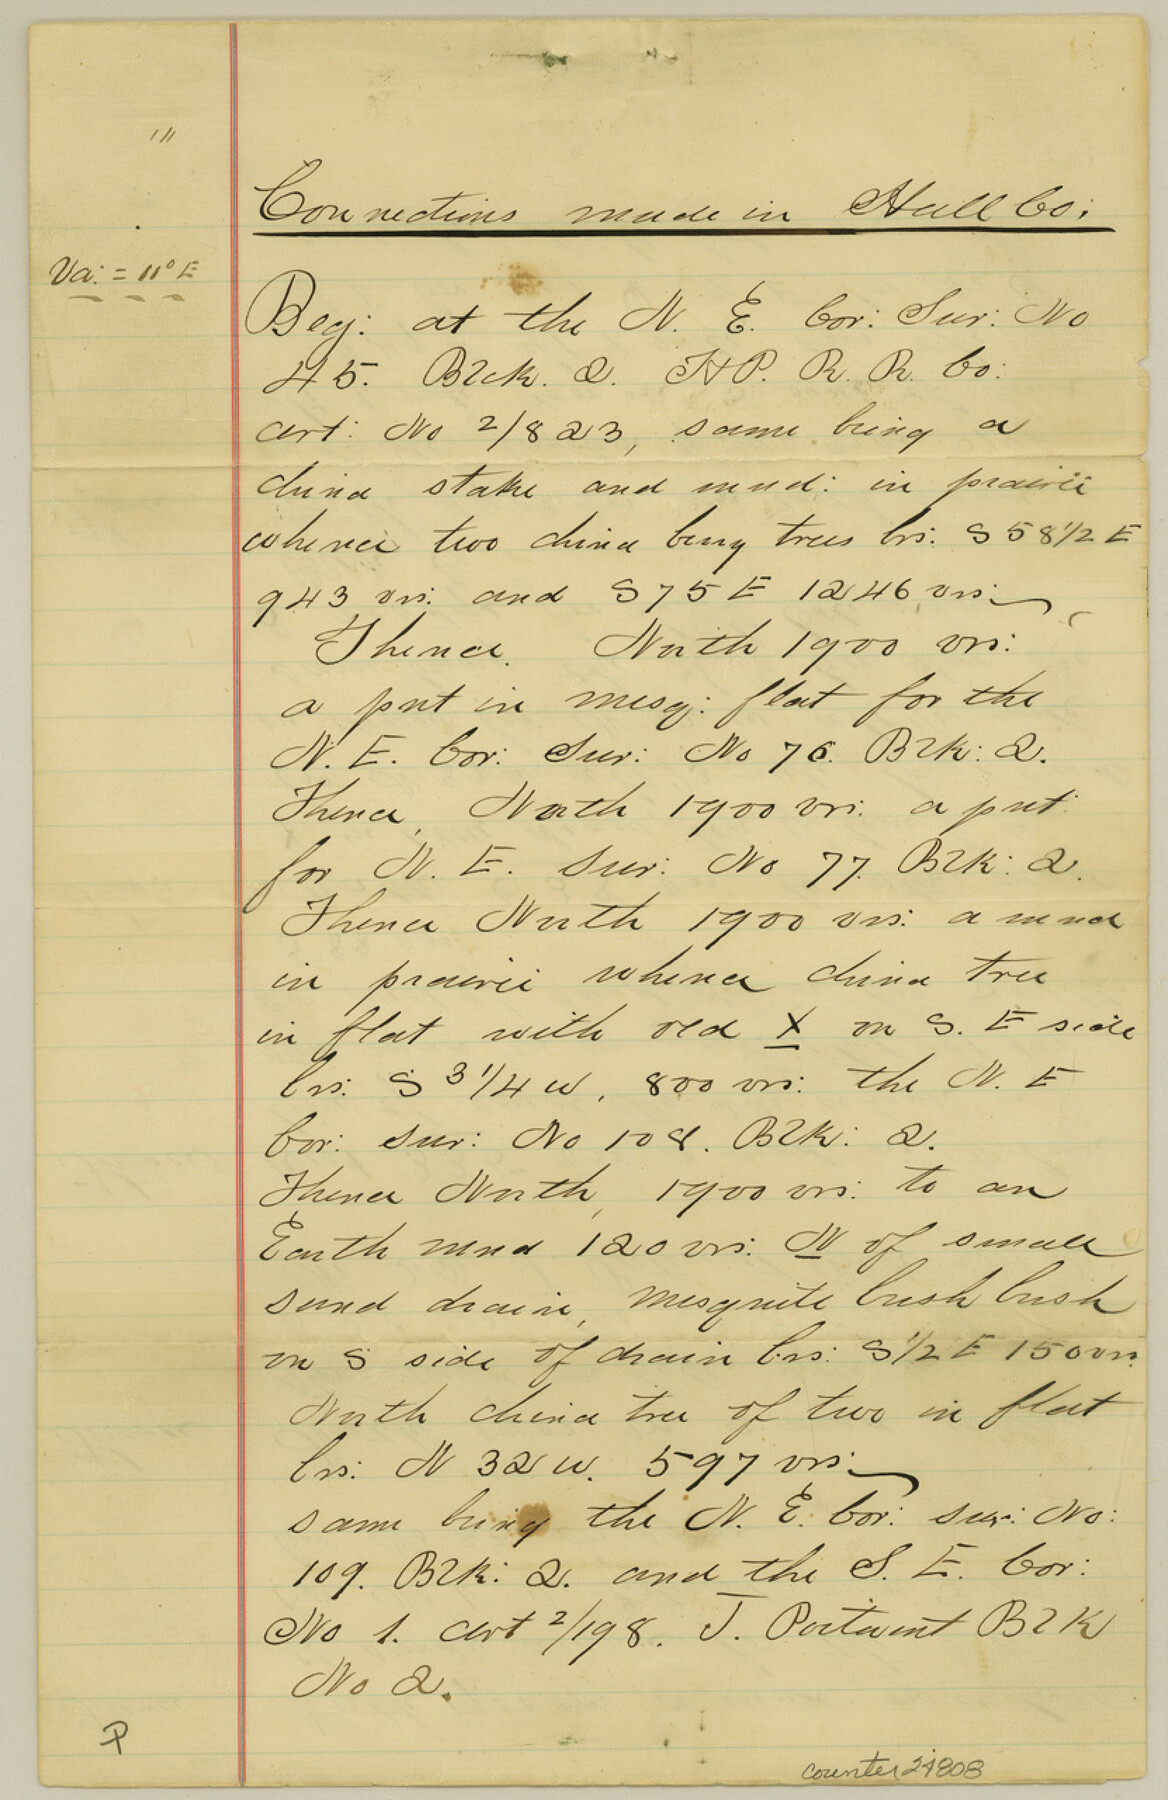 "'
Connections made in Hall Co:
Va: = 11° E
Beg: at the N. E. Cor: Sur: No
45. Blk. 2. H&P. R. R. Co:
cert: No 2/823, same being a
china stake and mnd: in prairie
whence two china berry trees brs: S 58 1/2 E
943 vrs: and S 75 E 1246 vrs:
Thence. North 1900 vrs:
a pnt in mesq: flat for the
N. E. Cor: Sur: No 76. Blk: 2.
Thence, North 1900 vrs: a pnt
for N. E. Sur: No 77. Blk: 2.
Thence North 1900 vrs: a mnd
in prairie whence china tree
in flat with old X on S. E side
brs: S 3 1/4 W, 800 vrs: the N. E
Cor: Sur: No 108. Blk: 2.
Thence North, 1900 vrs: to an
Earth mnd 120 vrs: N of small
sand drain, mesquite bush bush
on S side of drain brs: S 1/2 E 150 vrs
North china tree of two in flat
brs: N 32 W. 597 vrs:
same being the N. E. Cor: Sur: No:
109. Blk: 2. and the S. E. Cor:
No 1. cert 2/198. J. Poitevent Blk
No 2.
P
counter 24808